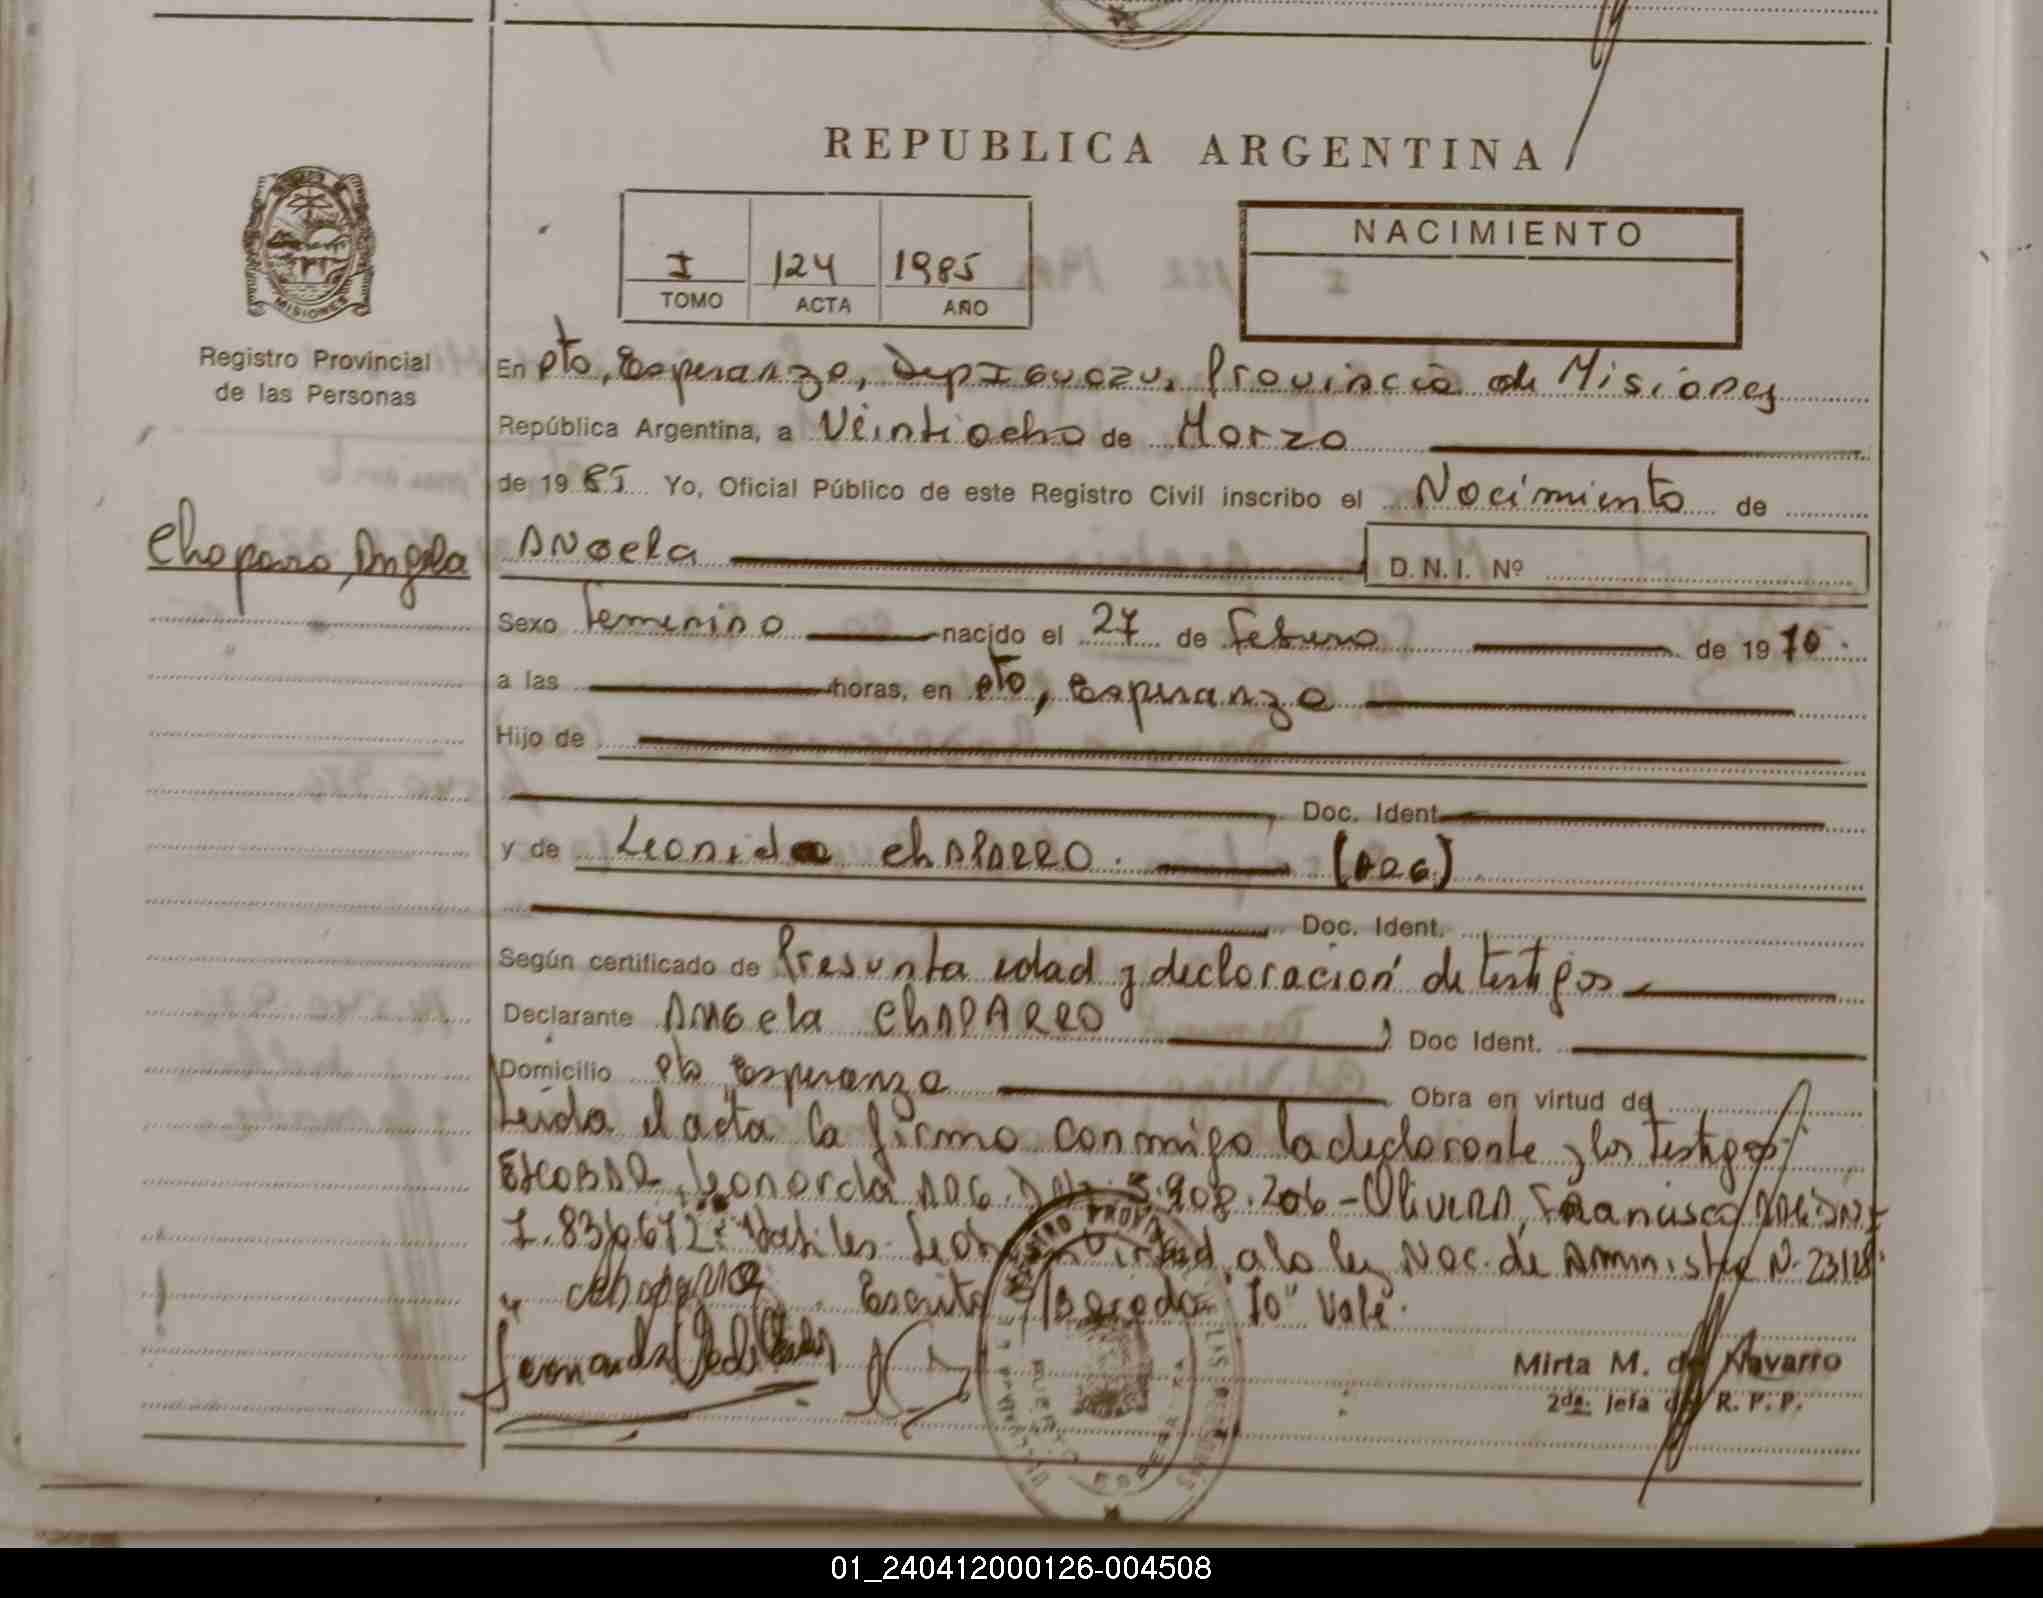 REPUBLICA ARGENTINA
I 124 1985
TOMO ACTA AÑO
NACIMIENTO
MISIONES
Registro Provincial
de las Personas
Chaparro, Angela
En Pto, Esperanza, Dep Iguazu, Provincia de Misiones
República Argentina, a Veintiocho de Marzo
de 19 85 Yo, Oficial Público de este Registro Civil inscribo el Nacimiento de
ANGela
D.N.I. Nº
Sexo Femenino nacido el 27 de Febrero de 19 70
a las horas, en Pto, Esperanza
Hijo de
Doc. Ident.
y de Leonida ChAPARRO. (ARG)
Doc. Ident.
Según certificado de Presunta edad y declaración de testigos
Declarante ANGela ChAPARRO Doc Ident.
Domicilio Pto Esperanza Obra en virtud de
Leida el acta la firma conmigo la declarante y los testigos
ESCOBAR, Leonarda ARG. D.N.I. 5.908.206 - Olivera, Francisco ARG DNI
7.836.672 a la ley Nac. de Aministia N. 23128.
Escrito S/Borrado "70" Vale.
Mirta M. de Navarro
2da. Jefa de R. P. P.
01_240412000126-004508